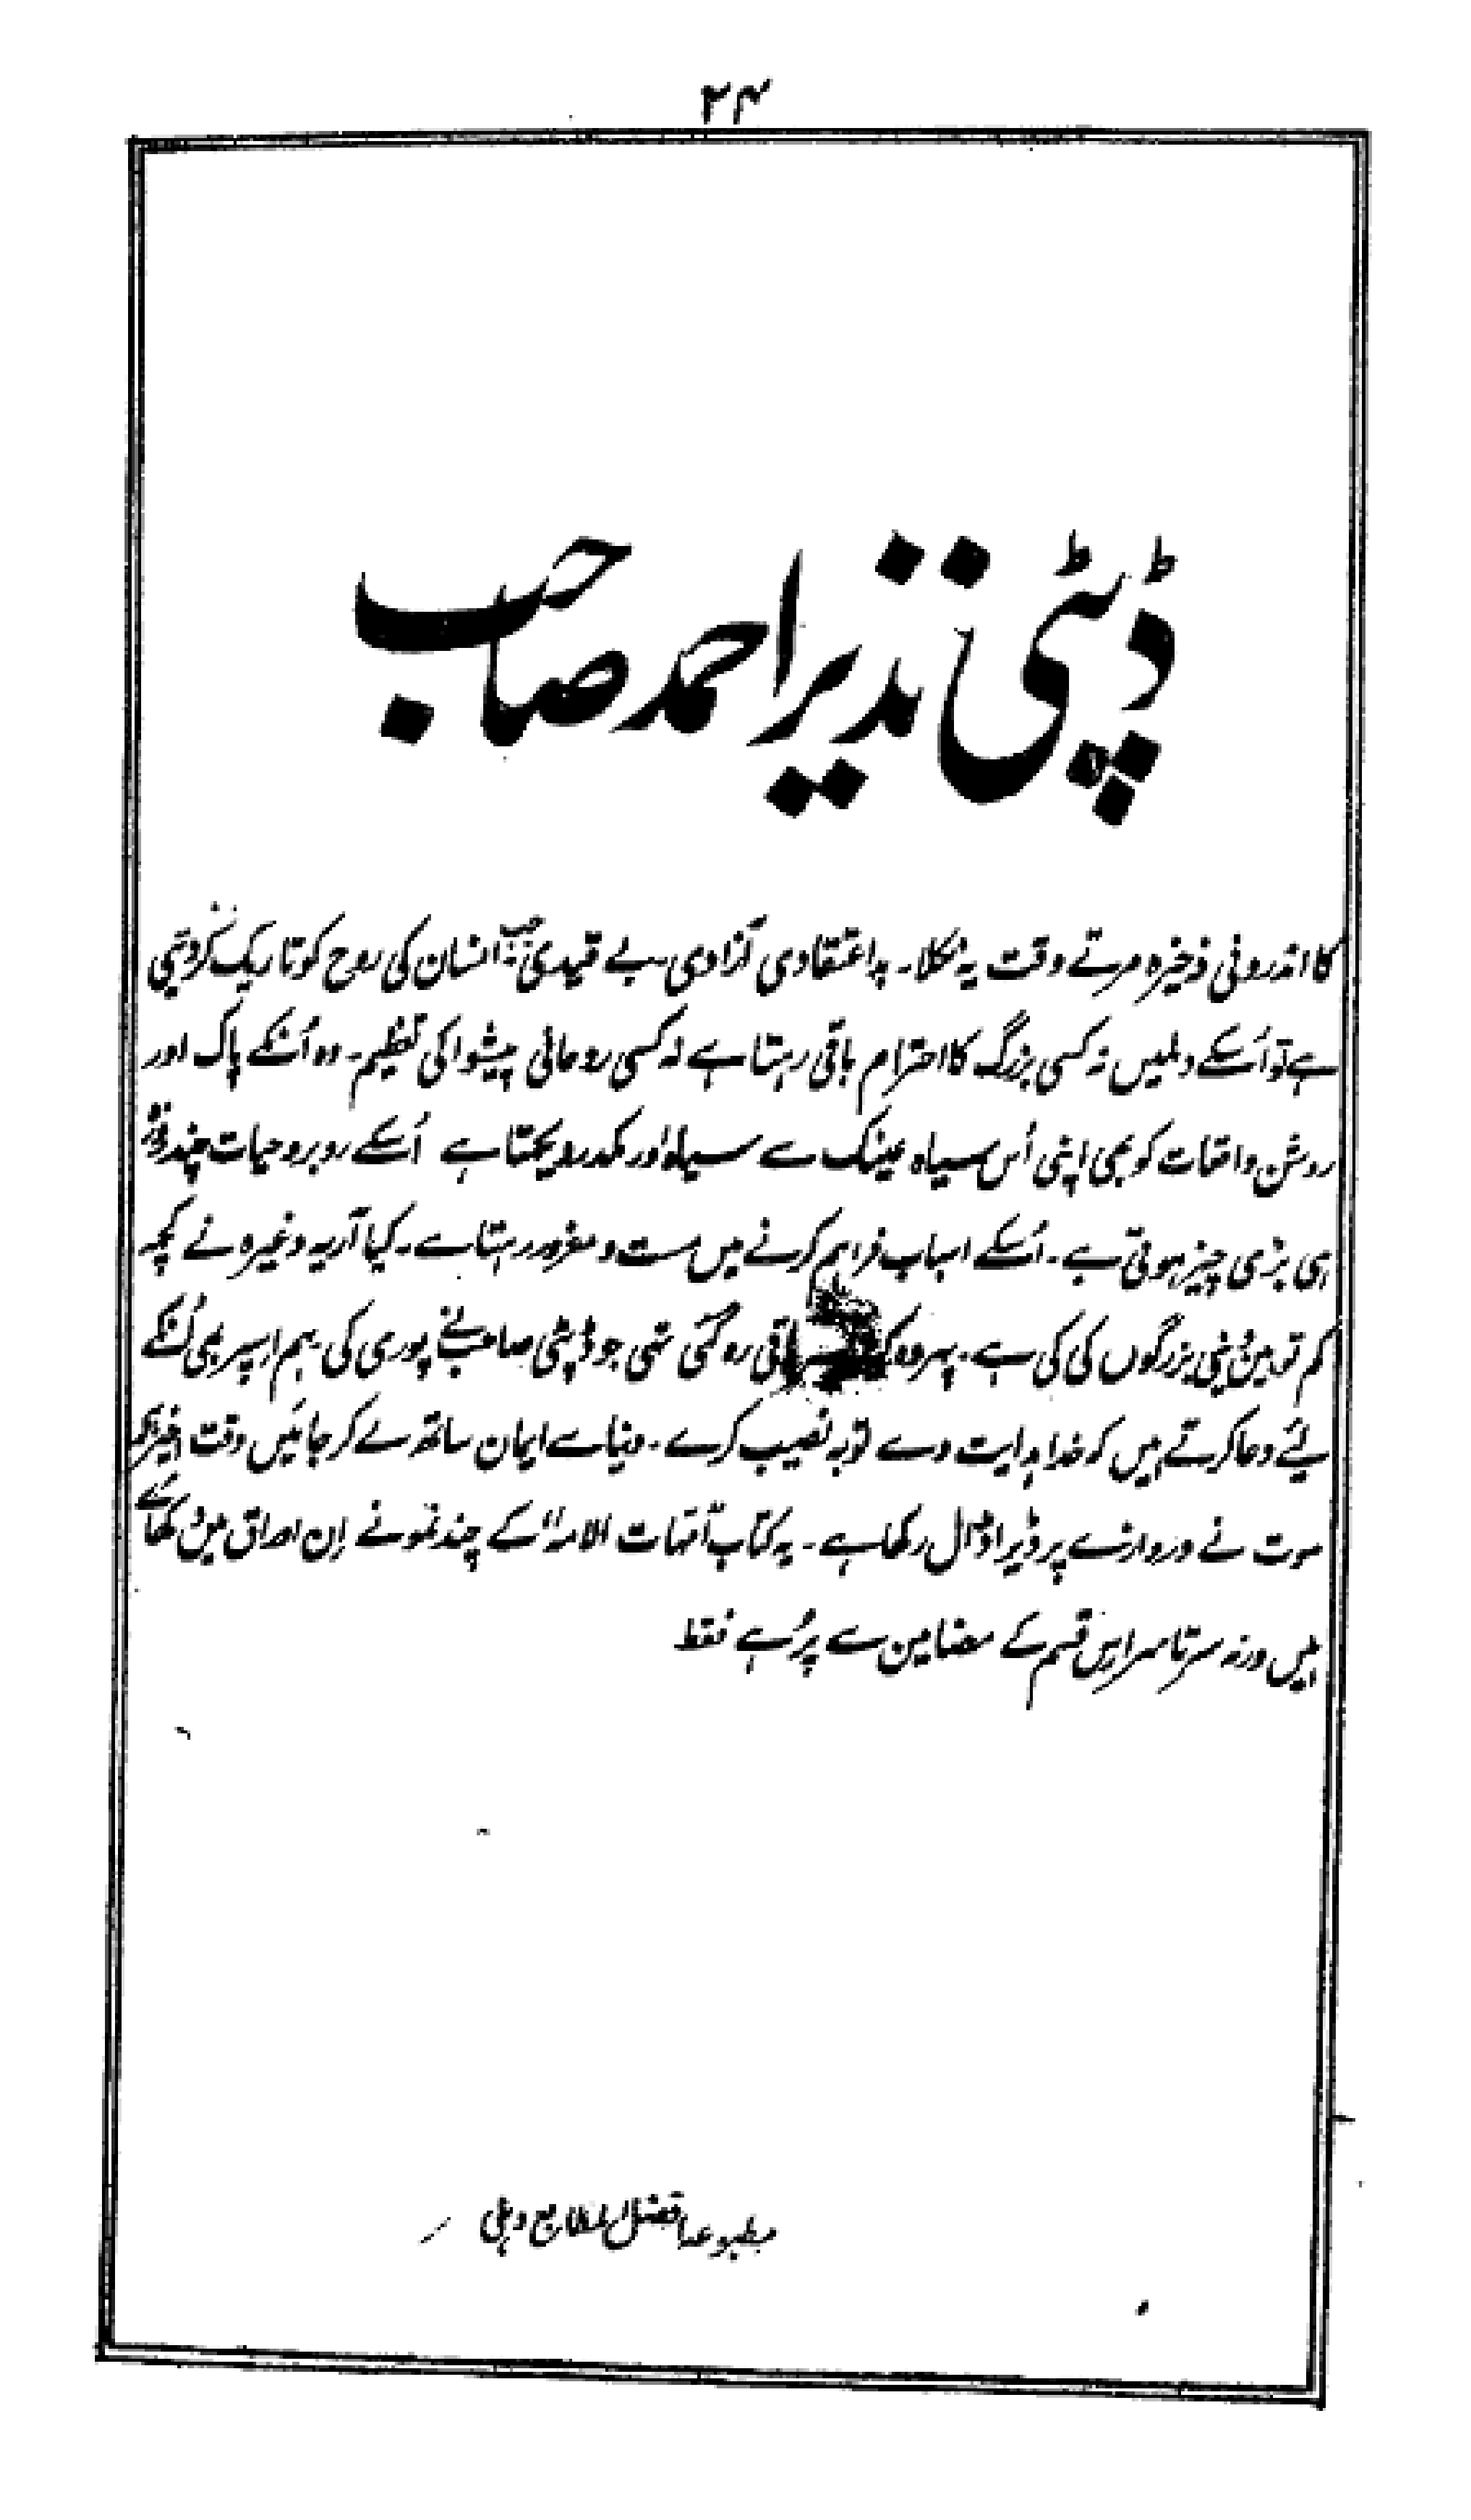 ۲۴
ڈپٹی نذیر احمد صاحب
کا اندرونی ذخیرہ مرتے وقت یہ نکلا۔ بداعتقادی آزادی بے قیدی جب انسان کی روح کو تاریک کردیتی
ہے تو اُسکے دلمیں نہ کسی بزرگ کا احترام باقی رہتا ہے نہ کسی روحانی پیشوا کی تعظیم۔ وہ اُنکے پاک اور
روشن واقعات کو بھی اپنی اُس سیاہ عینک سے سیاہ اور مکدر دیکھتا ہے اُسکے روبرو حیات چند روزہ
ہی بڑی چیز ہوتی ہے۔ اُسکے اسباب فراہم کرنے میں مست و مغرور رہتا ہے۔ کیا آریہ وغیرہ نے کچھ
کم توہین اپنی بزرگوں کی کی ہے۔ پہر وہ باقی رہ گئی تہی جو ڈپٹی صاحب نے پوری کی۔ ہم اسپر بھی اُنکے
لئے دعا کرتے ہیں کہ خدا ہدایت دے توبہ نصیب کرے۔ دنیا سے ایمان ساتھ لے کر جائیں وقت اخیر ہے
موت نے دروازے پر ڈیرا ڈال رکھا ہے۔ یہ کتاب اُمہات الامہ کے چند نمونے اِن اوراق میں دکھائے گئے
ہیں ورنہ سرتاسر اِسی قسم کے مضامین سے پُر ہے فقط
مطبوعہ افضل المطابع دہلی